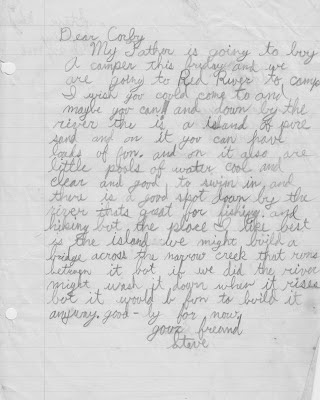 Dear Corby
My Father is going to buy
A camper this fryday and we
are going to Red River to camp
I wish you could come to and
maybe you can, and down by the
river the is a island of pure
sand and on it you can have
loads of fun. and on it also are
little pools of water cool and
clear and good to swim in, and
there is a good spot down by the
river thats great for fishing, and
hiking but the place I like best
is the island we might build a
bridge across the narrow creek that runs
betwen it but if we did the river
might wash it down when it rises
but it would b fun to build it
anyway. good-by for now
your freand
Steve